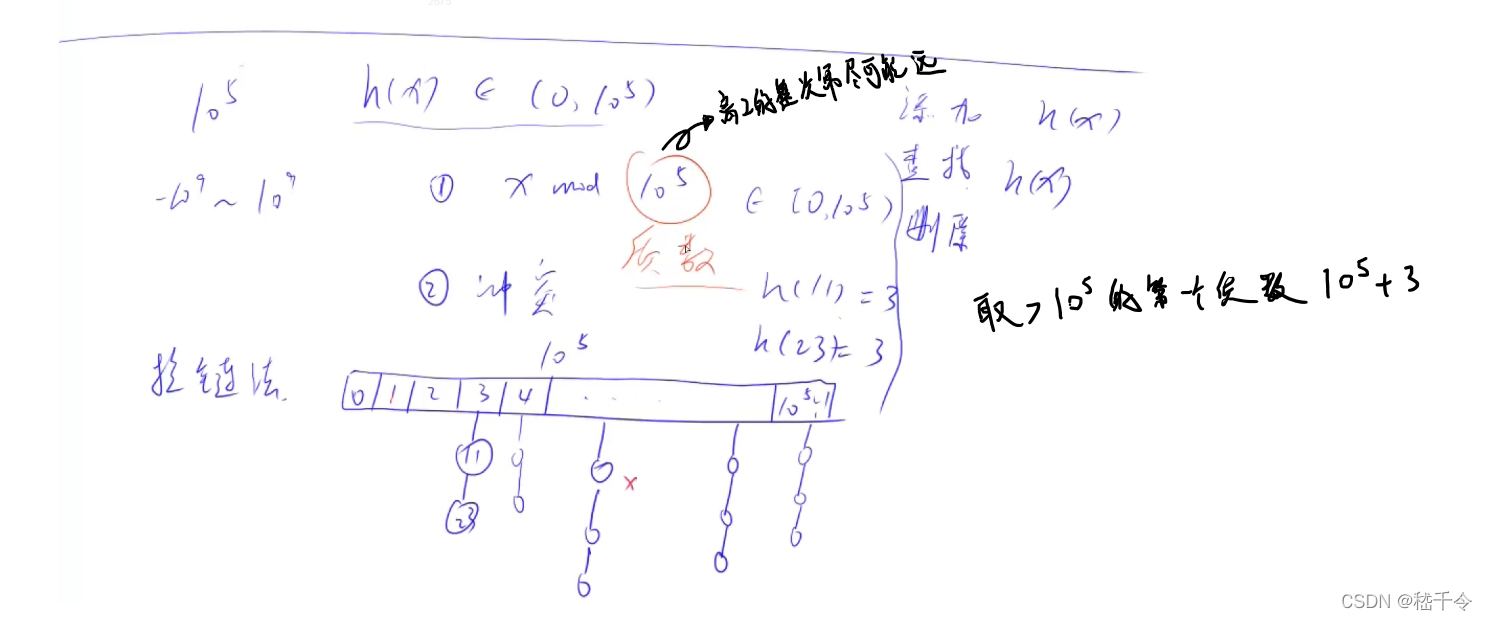 10^5
h(x) ∈ (0, 10^5)
离2的整次幂尽可能远
添加 h(x)
-10^9 ~ 10^9
① x mod 10^5 ∈ [0, 10^5)
质数
查找 h(x)
删除
② 冲突
h(11) = 3
h(23) = 3
取 > 10^5 的第一个质数 10^5+3
拉链法
10^5
0 1 2 3 4 ... 10^5-1
11
23
x
CSDN @嵇千令